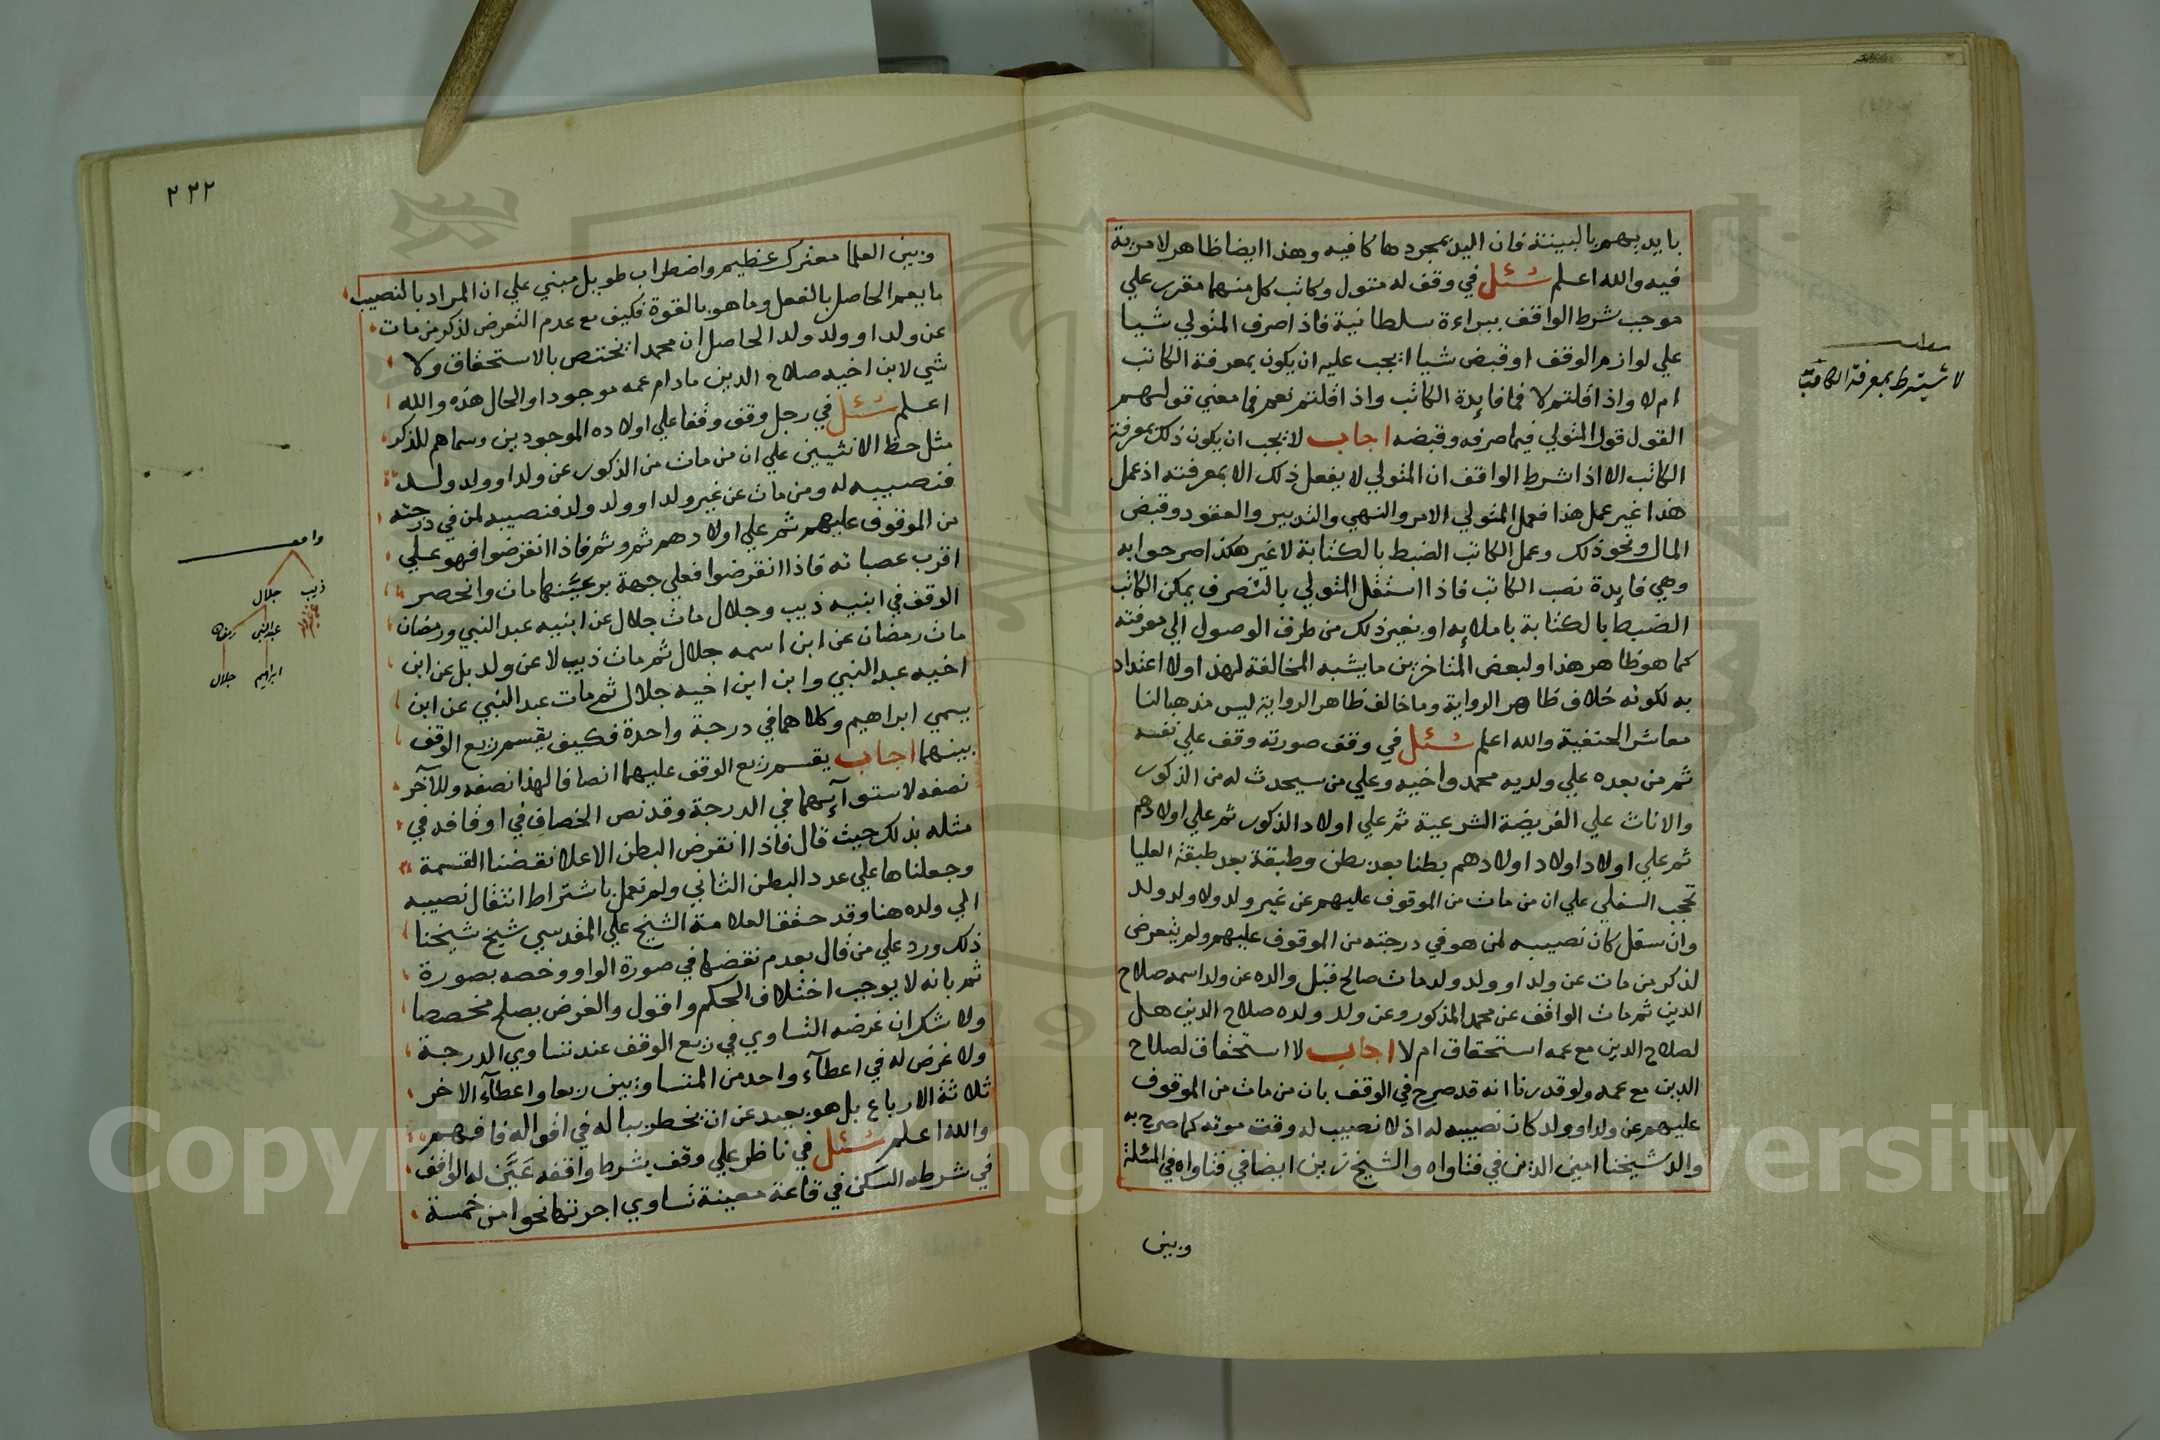 بايديهم بالبينة فان اليد بمجردها كافيه وهذا ايضا ظاهر لا مرية
فيه والله اعلم سئل في وقف له متول وكاتب كل منهما مقرر علي
موجب شرط الواقف ببراءة سلطانية فاذا صرف المتولي شيا
علي لوازم الوقف او قبض شيا ايجب عليه ان يكون بمعرفة الكاتب
ام لا واذا قلتم لا فما فايدة الكاتب واذا قلتم نعم فما معني قولهم
القول قول المتولي فيما صرفه وقبضه اجاب لا يجب ان يكون ذلك بمعرفة
الكاتب الا اذا شرط الواقف ان المتولي لا يفعل ذلك الا بمعرفته اذ عمل
هذا غير عمل هذا فعمل المتولي الامر والنهي والتدبير والعقود وقبض
المال ونحو ذلك وعمل الكاتب الضبط بالكتابة لا غير هكذا صرحوا به
وهي فايدة نصب الكاتب فاذا استقل المتولي بالتصرف يمكن الكاتب
الضبط بالكتابة باملايه او بغير ذلك من طرف الوصول الي معرفته
كما هو ظاهر هذا ولبعض المتاخرين ما يشبه المخالفة لهذا ولا اعتداد
به لكونه خلاف ظاهر الرواية وما خالف ظاهر الرواية ليس مذهبا لنا
معاشر الحنفية والله اعلم سئل في وقف صورته وقف علي نفسه
ثم من بعده علي ولديه محمد واخيه وعلي من سيحدث له من الذكور
والاناث علي الفريضة الشرعية ثم علي اولاد الذكور ثم علي اولادهم
ثم علي اولاد اولاد اولادهم بطنا بعد بطن وطبقة بعد طبقة العليا
تحجب السفلي علي ان من مات من الموقوف عليهم عن غير ولد ولا ولد ولد
وان سفل كان نصيبه لمن هو في درجته من الموقوف عليهم ولم يتعرض
لذكر من مات عن ولد او ولد ولد مات صالح قبل والده عن ولد اسمه صلاح
الدين ثم مات الواقف عن محمد المذكور وعن ولد ولده صلاح الدين هل
لصلاح الدين مع عمه استحقاق ام لا اجاب لا استحقاق لصلاح
الدين مع عمه ولو قدرنا انه قد صرح في الوقف بان من مات من الموقوف
عليهم عن ولد او ولد كان نصيبه له اذ لا نصيب له وقت موته كما صرح به
والد شيخنا امين الدين في فتاواه والشيخ زين ايضا في فتاواه في المئلة
وبين
لا يشترط بمعرفة الكاتب
٢٢٢
وبين العلما معترك عظيم واضطراب طويل مبني علي ان المراد بالنصيب
ما يعم الحاصل بالفعل وما هو بالقوة فكيف مع عدم التعرض لذكر من مات
عن ولد او ولد ولد الحاصل ان محمدا يختص بالاستحقاق ولا
شي لابن اخيه صلاح الدين مادام عمه موجودا والحال هذه والله
اعلم سئل في رجل وقف وقفا علي اولاده الموجودين وسماهم للذكر
مثل حظ الانثيين علي ان من مات من الذكور عن ولد او ولد ولد
فنصيبه له ومن مات عن غير ولد او ولد ولد فنصيبه لمن في درجته
من الموقوف عليهم ثم علي اولادهم ثم وثم فاذا انقرضوا فهو علي
اقرب عصباته فاذا انقرضوا فعلي جهة بر عينها مات وانحصر
الوقف في ابنيه ذيب وجلال مات جلال عن ابنيه عبد النبي ورمضان
مات رمضان عن ابن اسمه جلال ثم مات ذيب لا عن ولد بل عن ابن
اخيه عبد النبي وابن ابن اخيه جلال ثم مات عبد النبي عن ابن
يسمي ابراهيم وكلاهما في درجة واحدة فكيف يقسم ريع الوقف
بينهما اجاب يقسم ريع الوقف عليهما انصافا لهذا نصفه وللآخر
نصفه لاستوآيهما في الدرجة وقد نص الخصاف في اوقافه في
مثله بذلك حيث قال فاذا انقرض البطن الاعلا نقضنا القسمة
وجعلناها علي عدد البطن الثاني ولم نعمل باشتراط انتقال نصيبه
الي ولده هنا وقد حقق العلامة الشيخ علي المقدسي شيخ شيخنا
ذلك ورد علي من قال بعدم نقضها في صورة الواو وخصه بصورة
ثم بانه لا يوجب اختلاف الحكم واقول والغرض يصلح مخصصا
ولا شك ان غرضه التساوي في ريع الوقف عند تساوي الدرجة
ولا غرض له في اعطآء واحد من المتساويين ربعا واعطآء الاخر
ثلاثة الارباع بل هو بعيد عن ان يخطر ببالله في اقواله فافهم
والله اعلم سئل في ناظر علي وقف بشرط واقفه عين له الواقف
في شرطه السكن في قاعة معينة تساوي اجرتها نحوا من خمسة
واقف
ذيب جلال
عبد النبي رمضان
ابراهيم جلال
Copyright © King Saud University